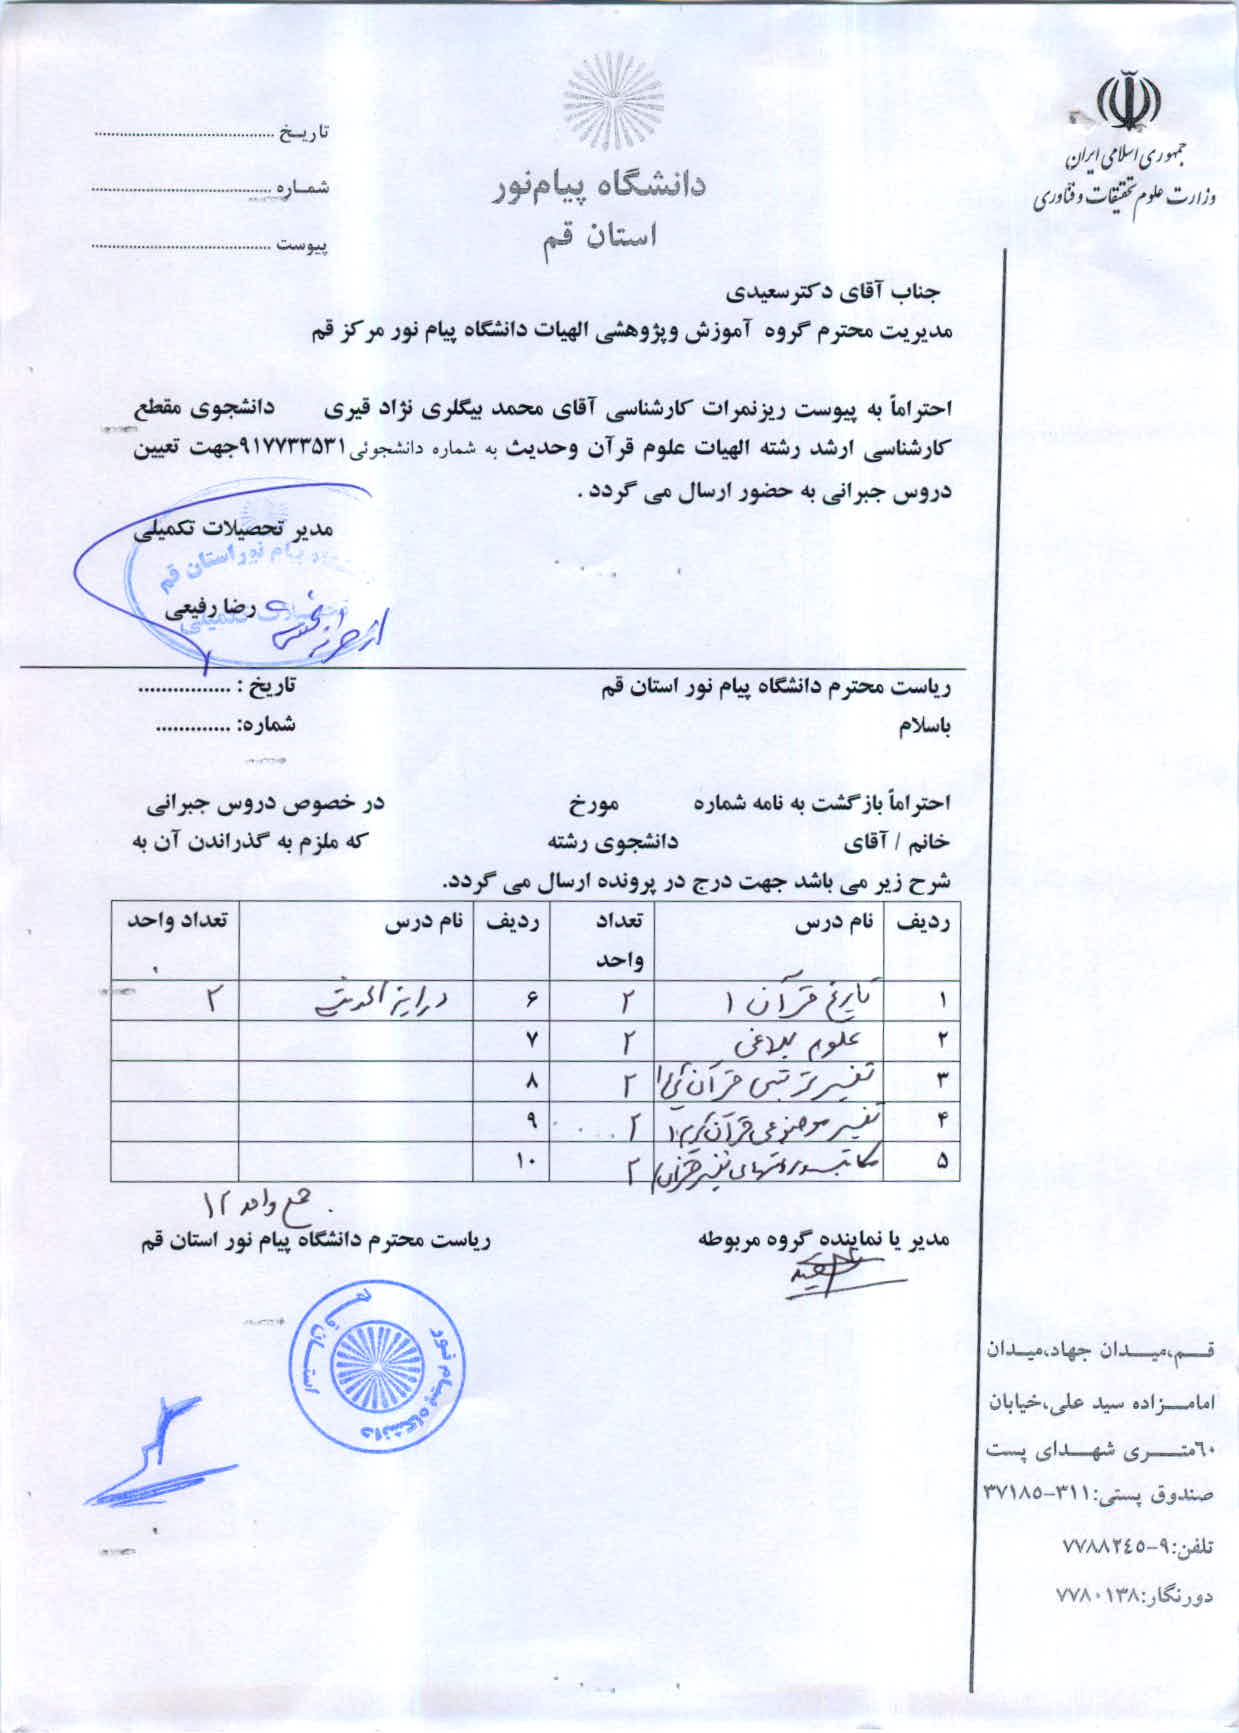 جمهوری اسلامی ایران
وزارت علوم تحقیقات و فناوری
دانشگاه پیام‌نور
استان قم
تاریـخ ..........................................
شمـاره ..........................................
پیوست ..........................................
جناب آقای دکترسعیدی
مدیریت محترم گروه آموزش وپژوهشی الهیات دانشگاه پیام نور مرکز قم
احتراماً به پیوست ریزنمرات کارشناسی آقای محمد بیگلری نژاد قیری دانشجوی مقطع
کارشناسی ارشد رشته الهیات علوم قرآن وحدیث به شماره دانشجوئی ۹۱۷۷۳۳۵۳۱جهت تعیین
دروس جبرانی به حضور ارسال می گردد .
مدیر تحصیلات تکمیلی
پیام نور استان قم
رضا رفیعی
تحصیلات تکمیلی
ریاست محترم دانشگاه پیام نور استان قم تاریخ : ................
باسلام شماره: .............
احتراماً بازگشت به نامه شماره مورخ در خصوص دروس جبرانی
خانم / آقای دانشجوی رشته که ملزم به گذراندن آن به
شرح زیر می باشد جهت درج در پرونده ارسال می گردد.
ردیف نام درس تعداد واحد ردیف نام درس تعداد واحد
۱ تاریخ قرآن ۱ ۲ ۶ درایة الحدیث ۲
۲ علوم بلاغی ۲ ۷
۳ تفسیر ترتیبی قرآن ۲ ۸
۴ تفسیر موضوعی قرآن کریم ۱ ۲ ۹
۵ مکاتب و روشهای تفسیر قرآن ۲ ۱۰
جمع واحد ۱۲
مدیر یا نماینده گروه مربوطه ریاست محترم دانشگاه پیام نور استان قم
دانشگاه پیام نور
استان قم
قـم،میـدان جهاد،میـدان
امامـزاده سید علی،خیابان
٦٠متـری شهـدای پست
صندوق پستی:۳۱۱-۳۷۱۸۵
تلفن:۹-۷۷۸۸۲٤٥
دورنگار:۷۷۸۰۱۳۸